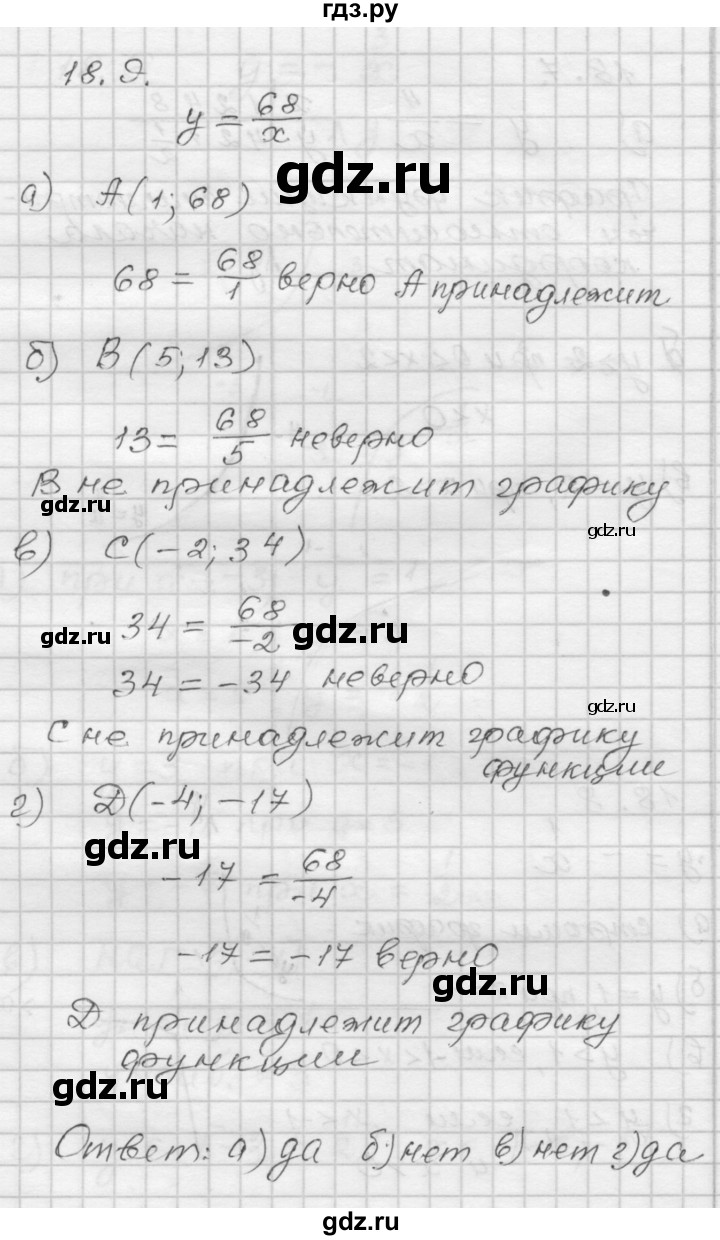 гдз.ру
18.9.
y = 68/x
gdz.ru
а) A(1; 68)
68 = 68/1 верно A принадлежит
б) B(5; 13)
13 = 68/5 неверно
B не принадлежит графику
gdz.ru
gdz.ru
в) C(-2; 34)
34 = 68/-2
gdz.ru
gdz.ru
34 = -34 неверно
gdz.ru
C не принадлежит графику
функции
г) D(-4; -17)
gdz.ru
-17 = 68/-4
-17 = -17 верно
gdz.ru
D принадлежит графику
функции
gdz.ru
Ответ: а) да б) нет в) нет г) да
gdz.ru